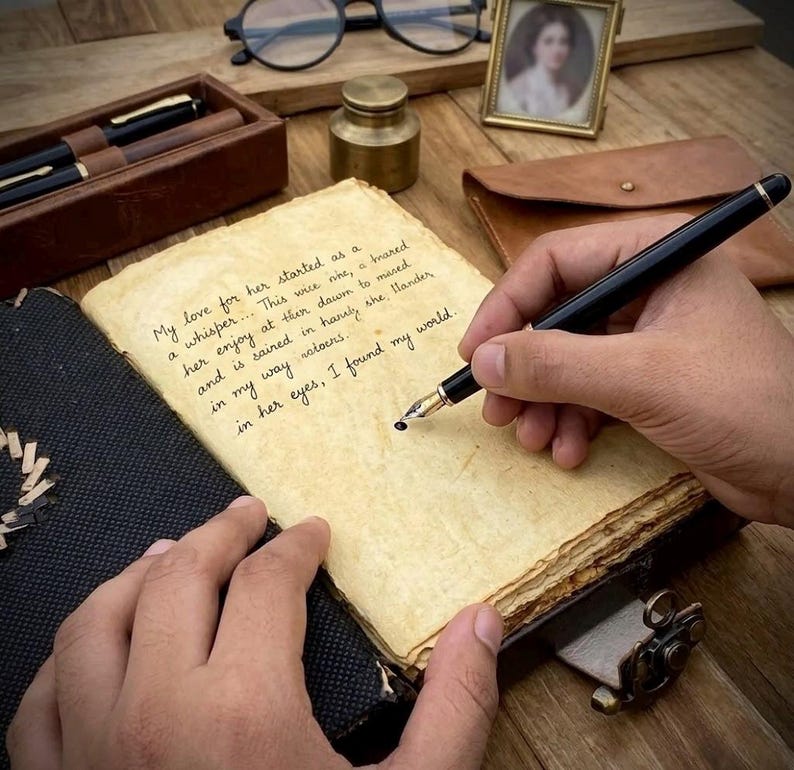 My love for her started as a
a whisper... This wice rhe, a hnared
her enjoy at their dawn to mased
and is saired in hardy she, Handen
in my way rotoers.
in her eyes, I found my world.